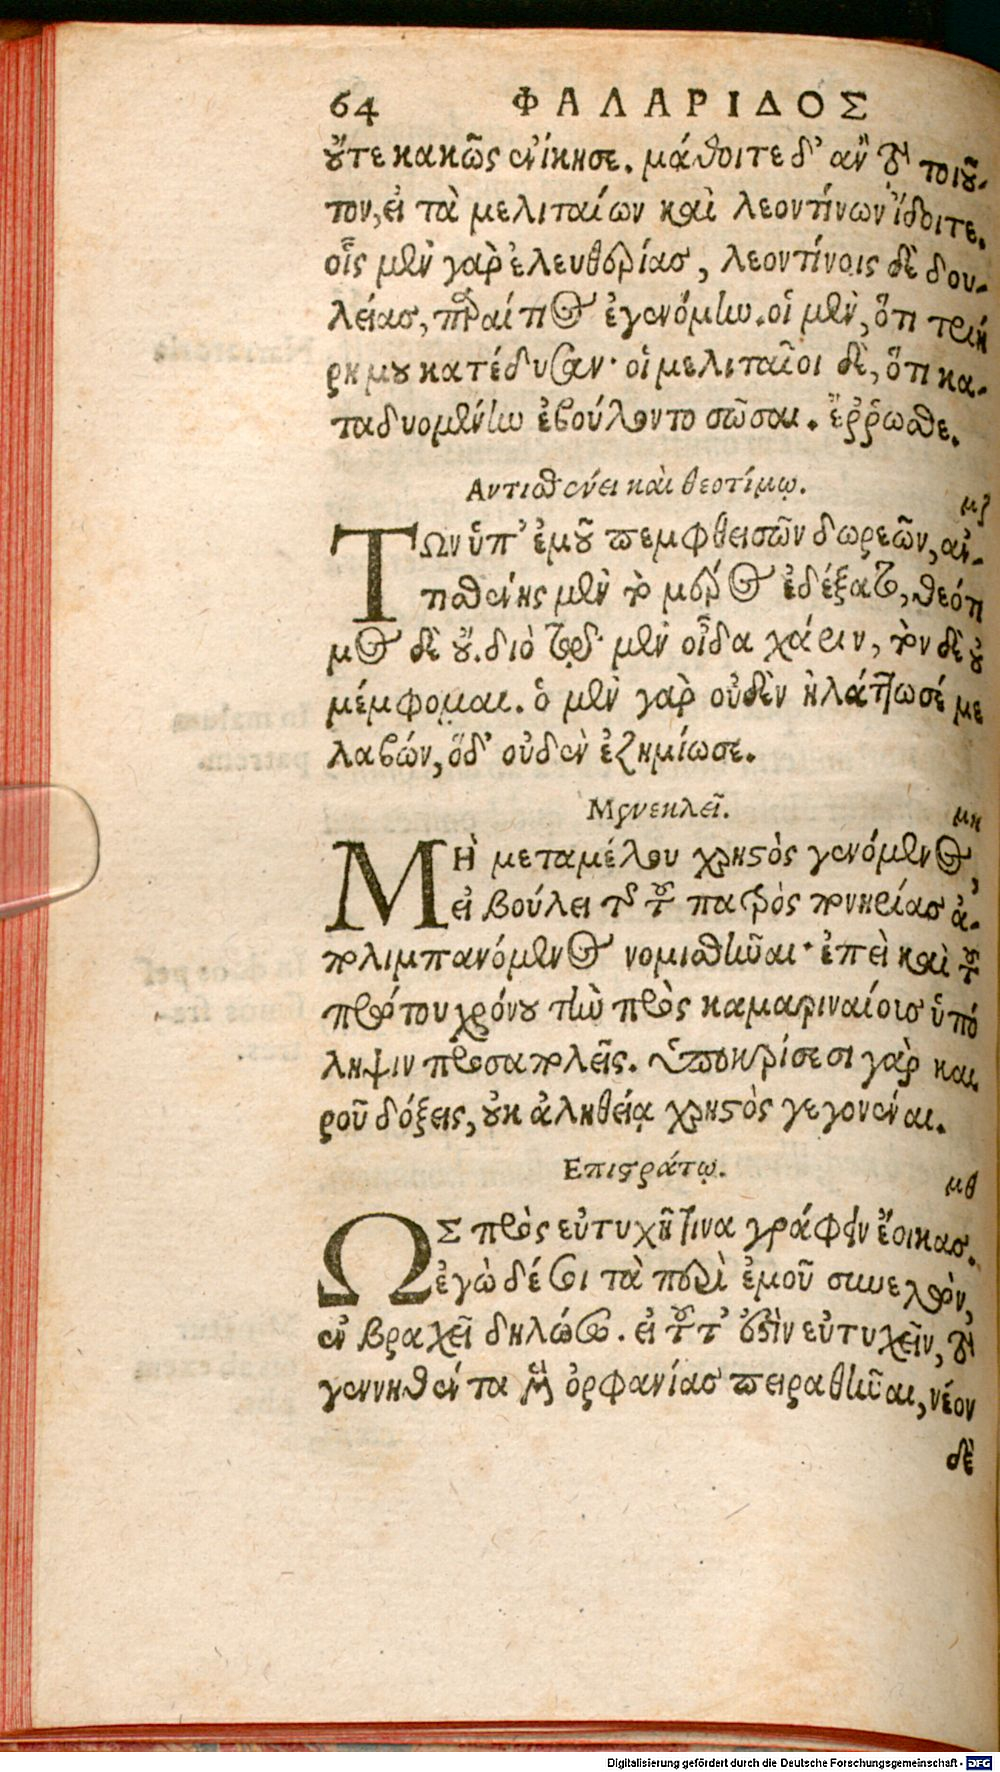 64 ΦΑΛΑΡΙΔΟΣ
ȣ́τε κακῶς ἐνίκησε. μάθοιτε δ' ἂν τὸ τοιȣ͂-
τον, εἰ τὰ μελιταίων καὶ λεοντίνων ἴδοιτε.
οἷς μὲν γὰρ ἐλευθερίας, λεοντίνοις δὲ δου-
λείας, παραίτιος ἐγενόμην. οἱ μὲν, ὅτι τριή
ρη μȣ κατέδυσαν· οἱ μελιταῖοι δὲ, ὅτι κα-
ταδυομένην ἐβούλοντο σῶσαι. ἔῤῥωσθε.
Αντισθένει καὶ θεοτίμῳ. μζ
ΤΩν ὑπ' ἐμȣ͂ πεμφθεισῶν δωρεῶν, ἀν-
τισθένης μὲν τὸ μέρος ἐδέξατο, θεότι
μος δὲ ȣ́. διὸ τῷ μὲν οἶδα χάριν, τὸν δὲ ȣ̓
μέμφομαι. ὁ μὲν γὰρ οὐδὲν ἠλάττωσέ με
λαβών, ὅδ' οὐδὲν ἐζημίωσε.
Μενεκλεῖ. μη
ΜῊ μεταμέλου χρηστὸς γενόμενος,
εἰ βούλει τῆς τȣ͂ πατρὸς πονηρίας ἀ-
πολιμπανόμενος νομισθῆναι· ἐπεὶ καὶ τȣ͂
προτου χρόνȣ τὴν πρὸς καμαριναίοις ὑπό
ληψιν προσαπολεῖς. ὑποκρίσεσι γὰρ και
ροῦ δόξεις, ȣ̓κ ἀληθείᾳ χρηστὸς γεγονέναι.
Επιστράτῳ. μθ
ΩΣ πρὸς εὐτυχῆ τινα γράφειν ἔοικας.
ἐγὼ δέ σοι τὰ περὶ ἐμοῦ συνελθὸν,
ἐν βραχεῖ δηλώσω. εἰ τȣ͂τ' ἐστὶν εὐτυχεῖν, τὸ
γεννηθέντα μὲν ὀρφανίας πειραθῆναι, νέον
δὲ
Digitalisierung gefördert durch die Deutsche Forschungsgemeinschaft - DFG